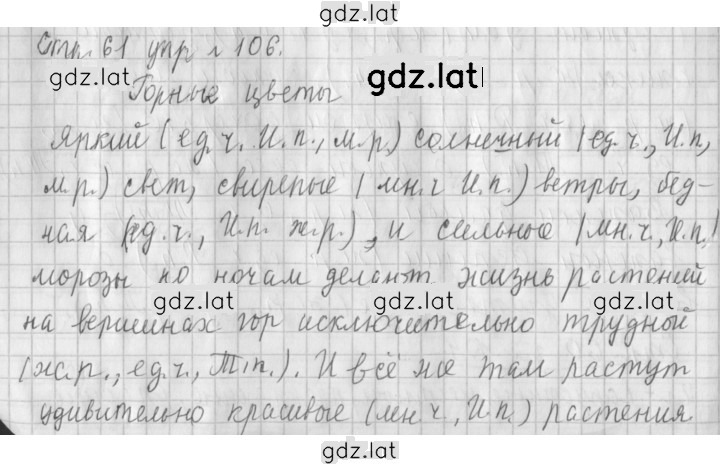 gdz.lat
Стр. 61 упр № 106.
gdz.lat gdz.lat
Горные цветы
Яркий (ед.ч., И.п., м.р.) солнечный (ед.ч., И.п,
м.р.) свет, свирепые (мн.ч И.п.) ветры, бед-
ная (ед.ч., И.п. ж.р.), и сильные (мн.ч., И.п.)
морозы по ночам делают жизнь растений
gdz.lat gdz.lat gdz.lat
на вершинах гор исключительно трудной
(ж.р., ед.ч., Т.п.). И всё же там растут
удивительно красивые (мн.ч, И.п.) растения
gdz.lat